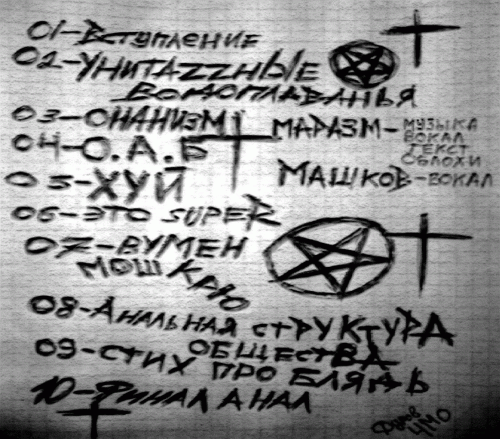 01-Вступление
02-УНИТАZZНЫЕ
ВОДОПЛАВАНЬЯ
03-ОНАНИЗМ
МАРАЗМ-МУЗЫКА
ВОКАЛ
ТЕКСТ
ОБЛОХИ
04-О.А.Б
МАШКОВ-ВОКАЛ
05-ХУЙ
06-ЭТО SUPER
07-ВУМЕН
МОШКАЮ
08-АНАЛЬНАЯ СТРУКТУРА
ОБЩЕСТВА
09-СТИХ ПРО БЛЯДЬ
10-ФИНАЛ АНАЛ
ЦМО